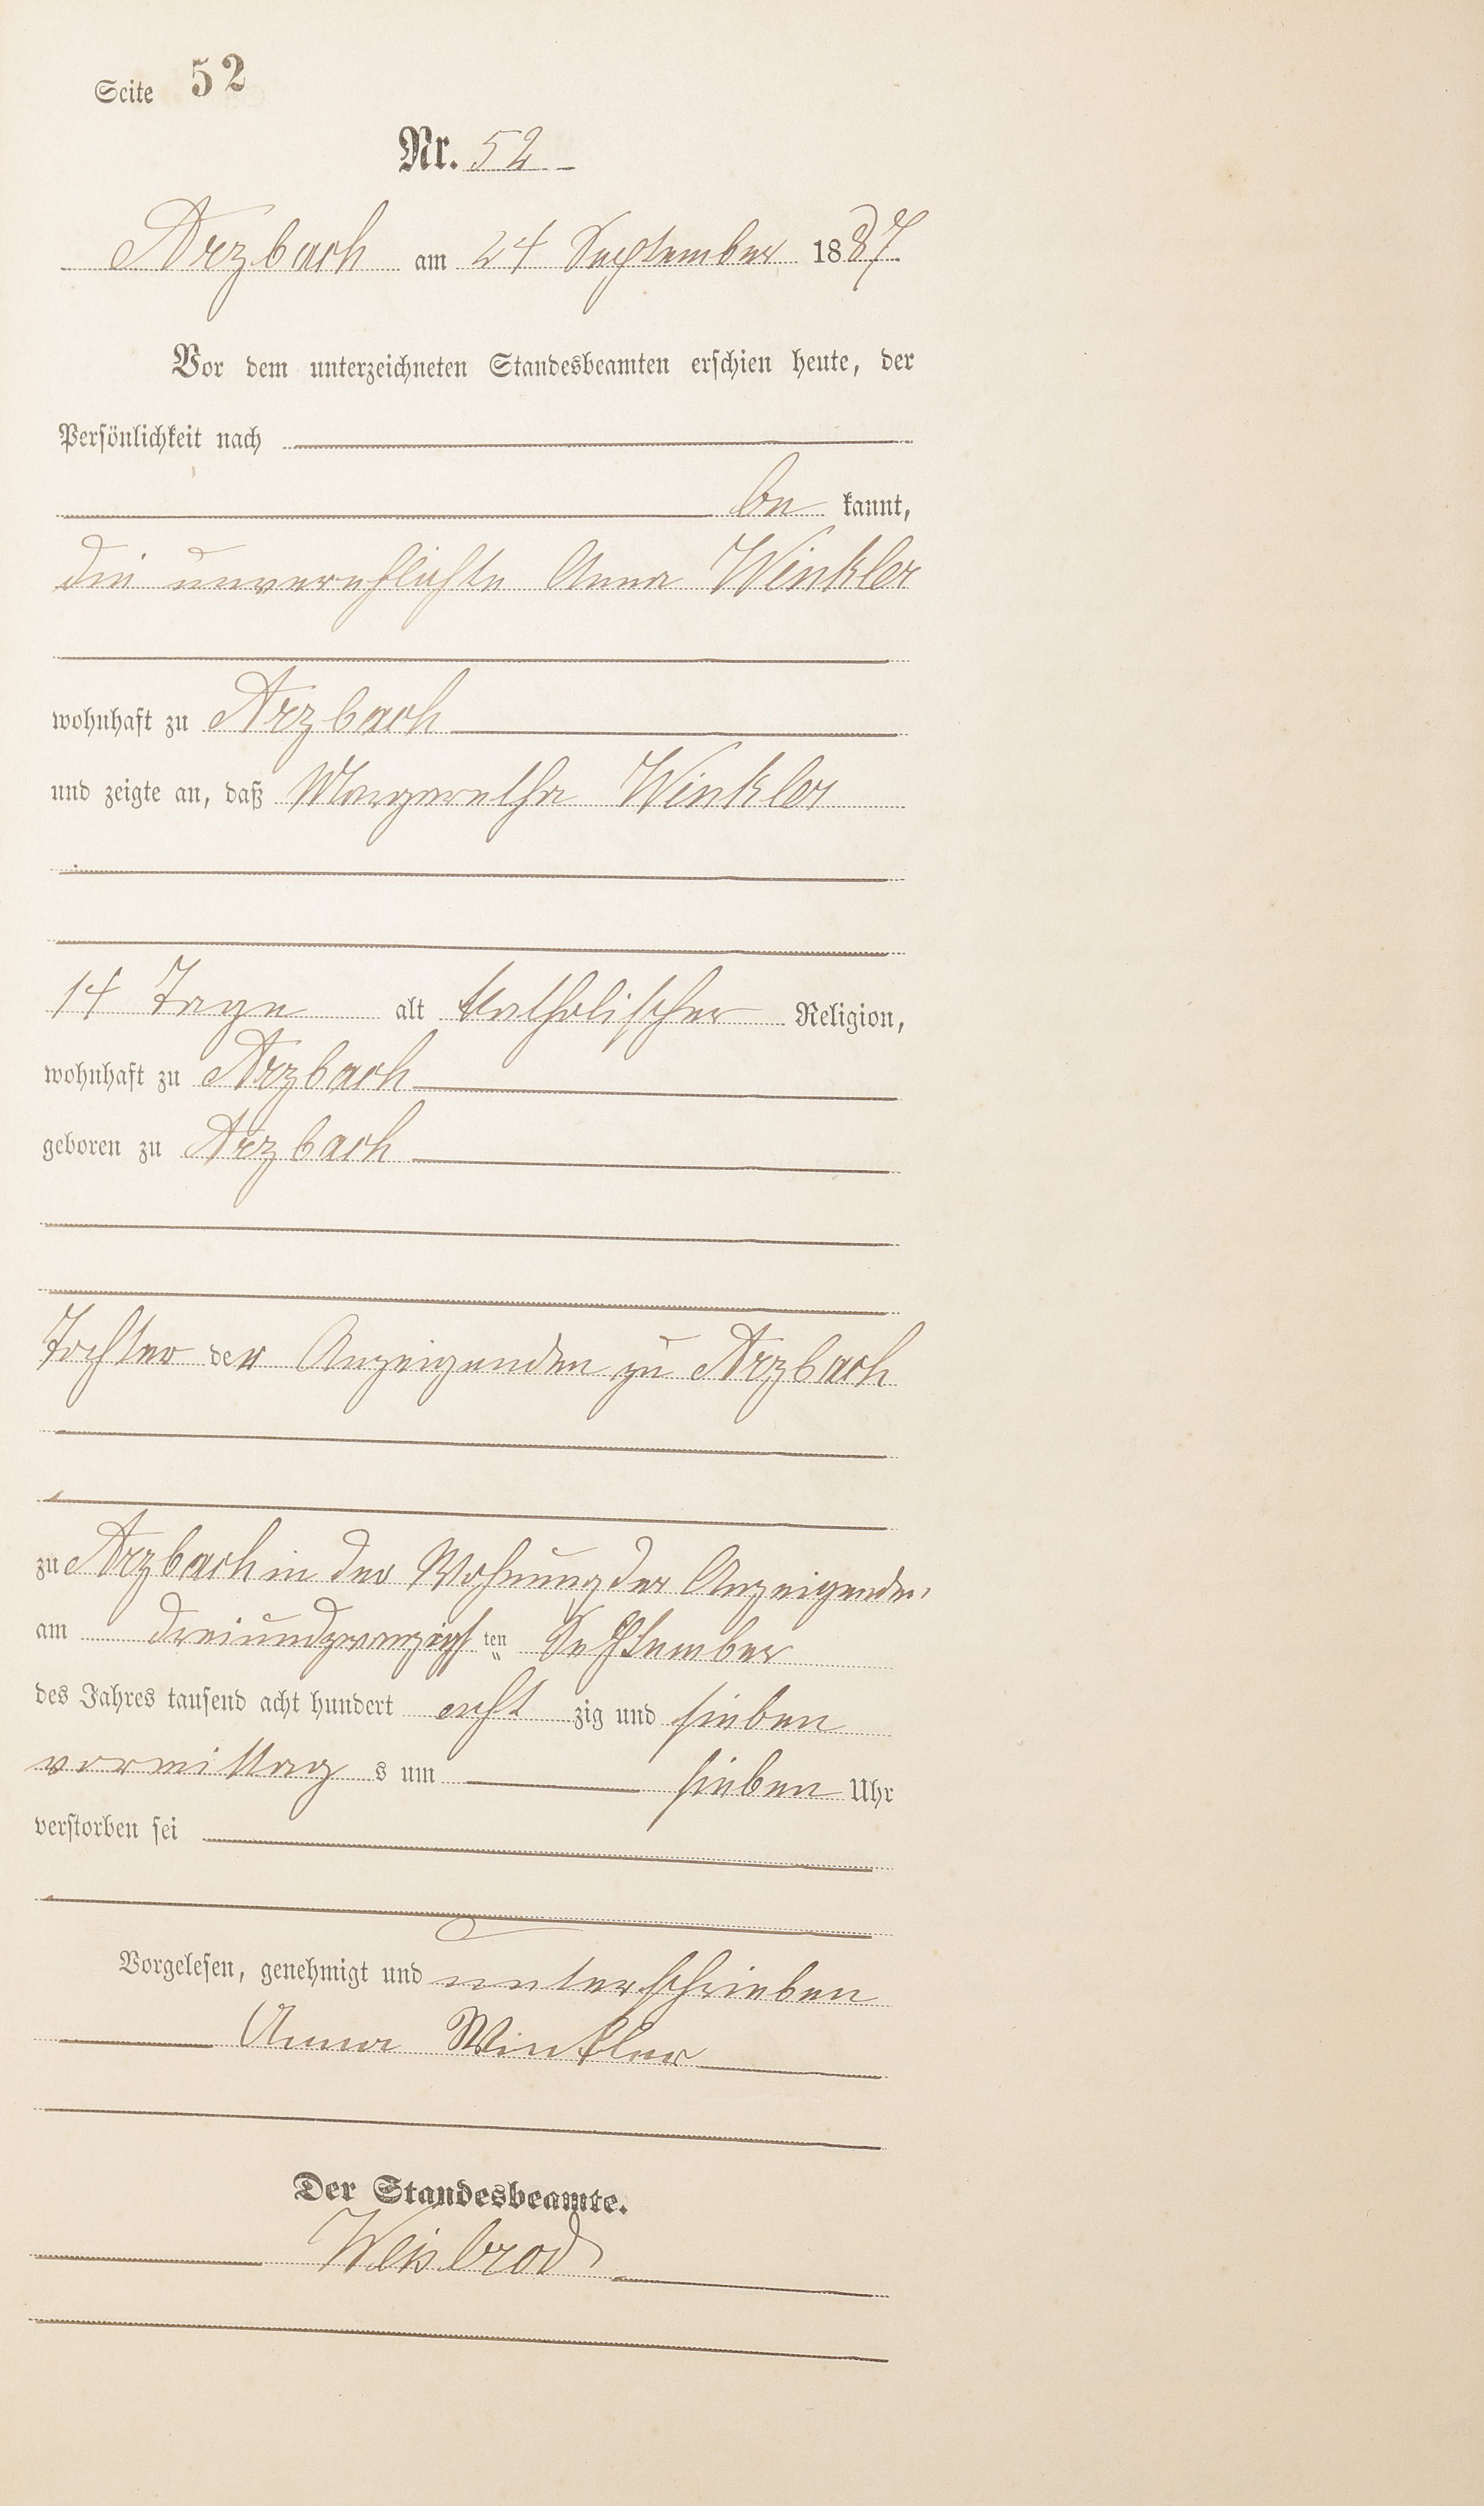 Seite 52
Nr. 52
Arzbach am 24 September 1887.
Vor dem unterzeichneten Standesbeamten erschien heute, der
Persönlichkeit nach
be kannt,
die unverehlichte Anna Winkler
wohnhaft zu Arzbach
und zeigte an, daß Margaretha Winkler
14 Tage alt katholischer Religion,
wohnhaft zu Arzbach
geboren zu Arzbach
Tochter der Anzeigenden zu Arzbach
zu Arzbach in der Wohnung der Anzeigenden,
am dreiundzwanzigsten September
des Jahres tausend acht hundert acht zig und sieben
vormittag s um sieben Uhr
verstorben sei
Vorgelesen, genehmigt und unterschrieben
Anna Winkler
Der Standesbeamte.
Weisbrod